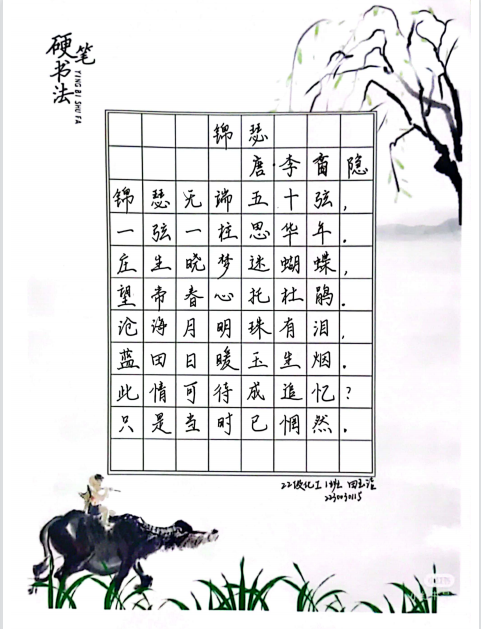 硬笔书法
YING BI SHU FA
锦瑟
唐·李商隐
锦瑟无端五十弦,
一弦一柱思华年.
庄生晓梦迷蝴蝶,
望帝春心托杜鹃.
沧海月明珠有泪,
蓝田日暖玉生烟.
此情可待成追忆?
只是当时已惘然.
22级化工1班
2230030115